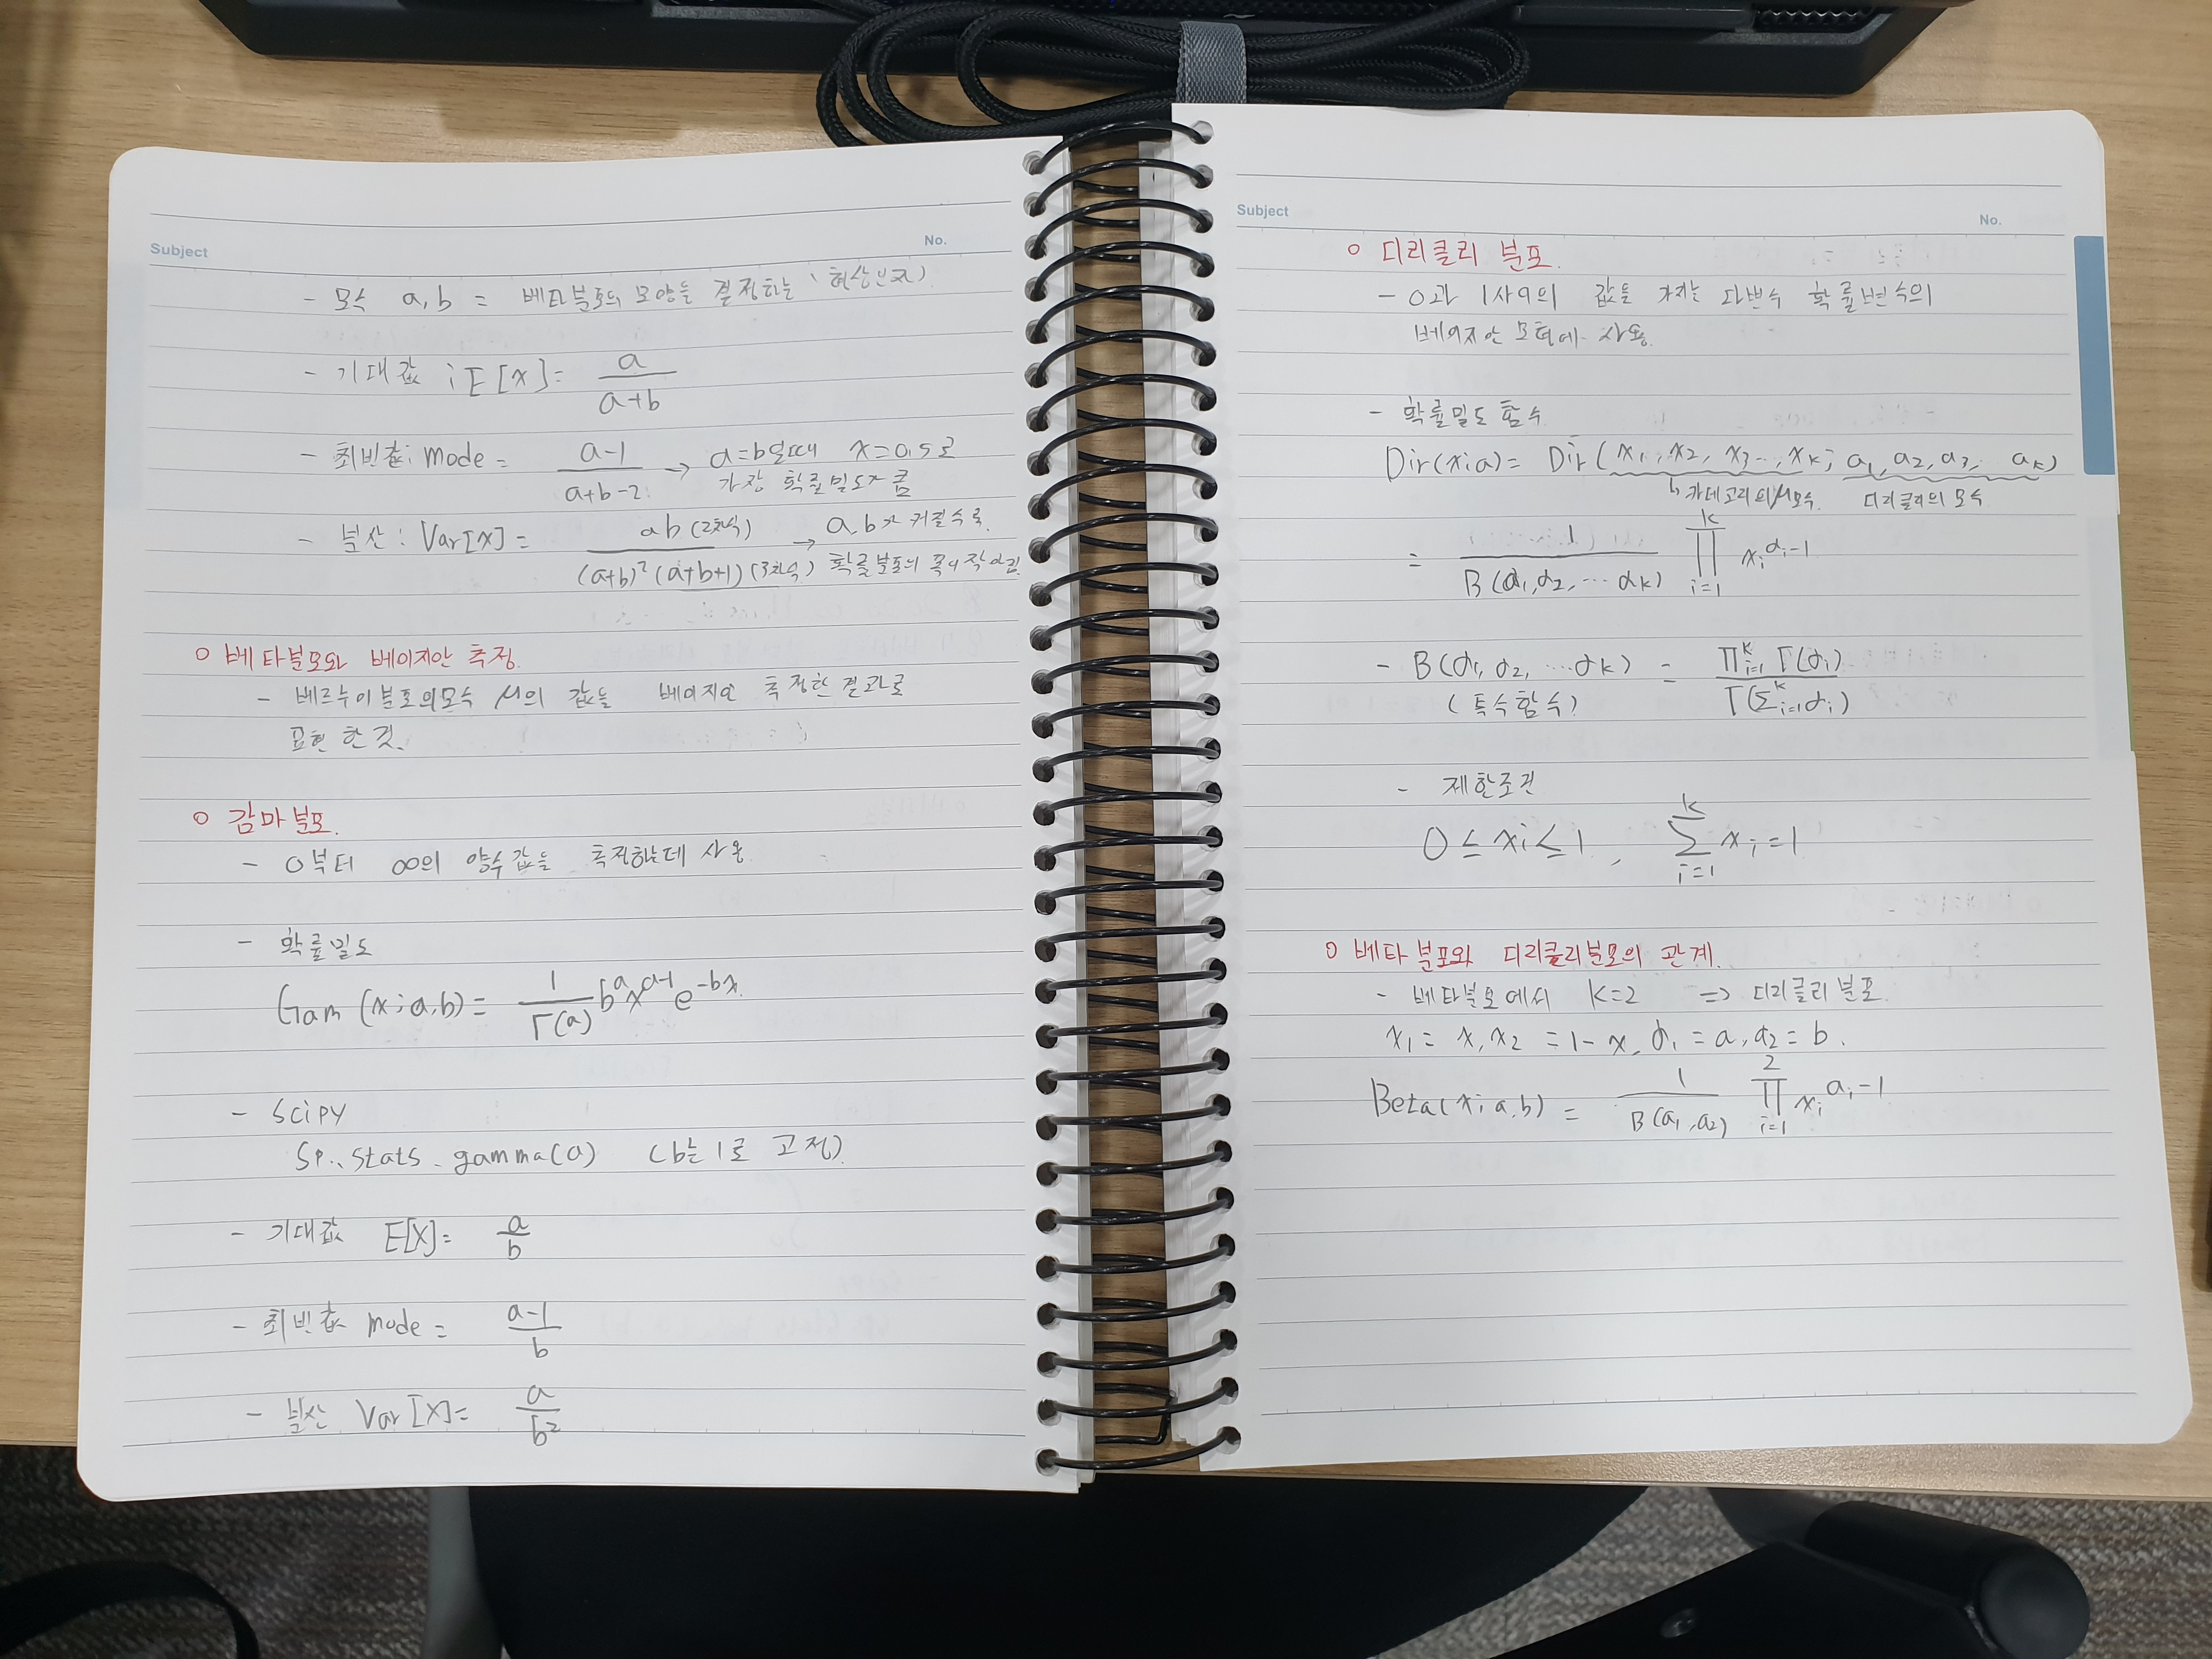 Subject No.
- 모수 a, b = 베타분포의 모양을 결정하는 (형상인자)
- 기대값 ; E[x] = a / (a+b)
- 최빈값; mode = (a-1) / (a+b-2) → a=b일때 x=0.5로
가장 확률밀도가 큼
- 분산 : Var[x] = ab (2차식) / (a+b)²(a+b+1) (3차식) → a, b가 커질수록
확률분포의 폭이 작아짐
○ 베타분포와 베이지안 추정.
- 베르누이분포의모수 μ의 값을 베이지안 추정한 결과로
표현 한 것.
○ 감마분포.
- 0부터 ∞의 양수값을 추정하는데 사용
- 확률밀도
Gam (x; a, b) = 1/Γ(a) b^a x^(a-1) e^(-bx)
- Scipy
SP. stats. gamma(a) (b는 1로 고정)
- 기대값 E[X] = a/b
- 최빈값 mode = (a-1)/b
- 분산 Var [X] = a/b²
Subject No.
○ 디리클리 분포.
- 0과 1사이의 값을 가지는 다변수 확률변수의
베이지안 모형에 사용.
- 확률밀도 함수
Dir(x; a) = Dir(x₁, x₂, x₃..., x_K; a₁, a₂, a₃, a_K)
↳ 카테고리의 μ모수. 디리클리의 모수
= 1/B(α₁, α₂, ... α_K) ∏_{i=1}^{K} x_i^{α_i-1}
- B(α₁, α₂, ... α_K) = ∏_{i=1}^{K} Γ(α_i) / Γ(∑_{i=1}^{K} α_i)
(특수함수)
- 제한조건
0 ≤ x_i ≤ 1, ∑_{i=1}^{K} x_i = 1
○ 베타 분포와 디리클리분포의 관계.
- 베타분포에서 K=2 => 디리클리 분포.
x₁ = x, x₂ = 1-x, α₁ = a, α₂ = b.
Beta(x; a, b) = 1/B(a₁, a₂) ∏_{i=1}^{2} x_i^{a_i-1}